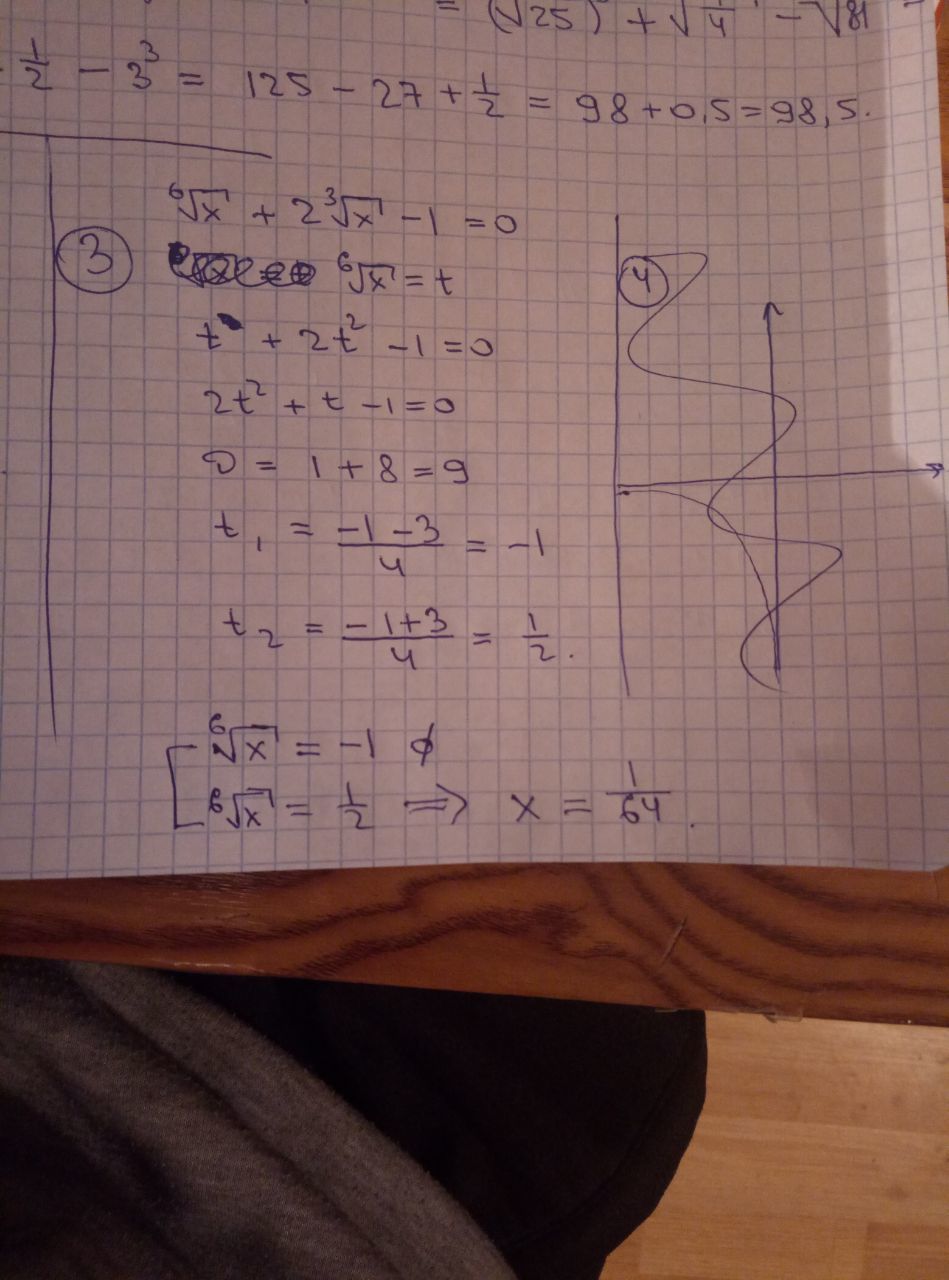 = (√25) + √1/4 - √81 =
1/2 - 3³ = 125 - 27 + 1/2 = 98 + 0,5 = 98,5.
③
⁶√x + 2³√x - 1 = 0
⁶√x = t
t + 2t² - 1 = 0
2t² + t - 1 = 0
D = 1 + 8 = 9
t₁ = (-1 - 3)/4 = -1
t₂ = (-1 + 3)/4 = 1/2.
[ ⁶√x = -1 ∅
⁶√x = 1/2 ⇒ x = 1/64.
④